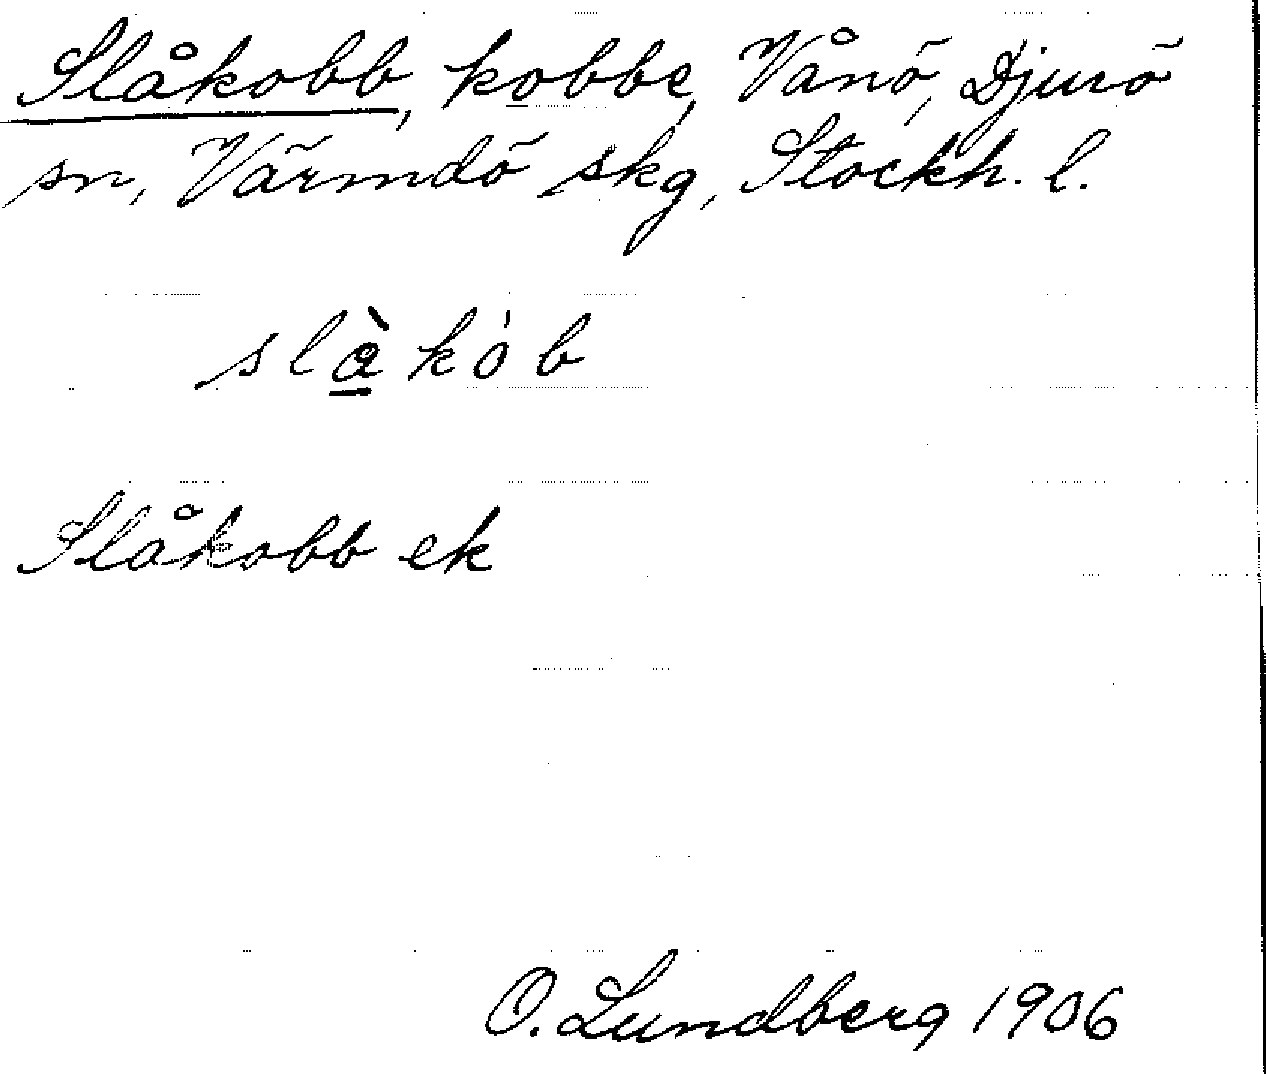 Slåkobb, kobbe, Vånö, Djurö
sn, Värmdö skg, Stockh. l.
slàkób
Slåkobb ek
O. Lundberg 1906